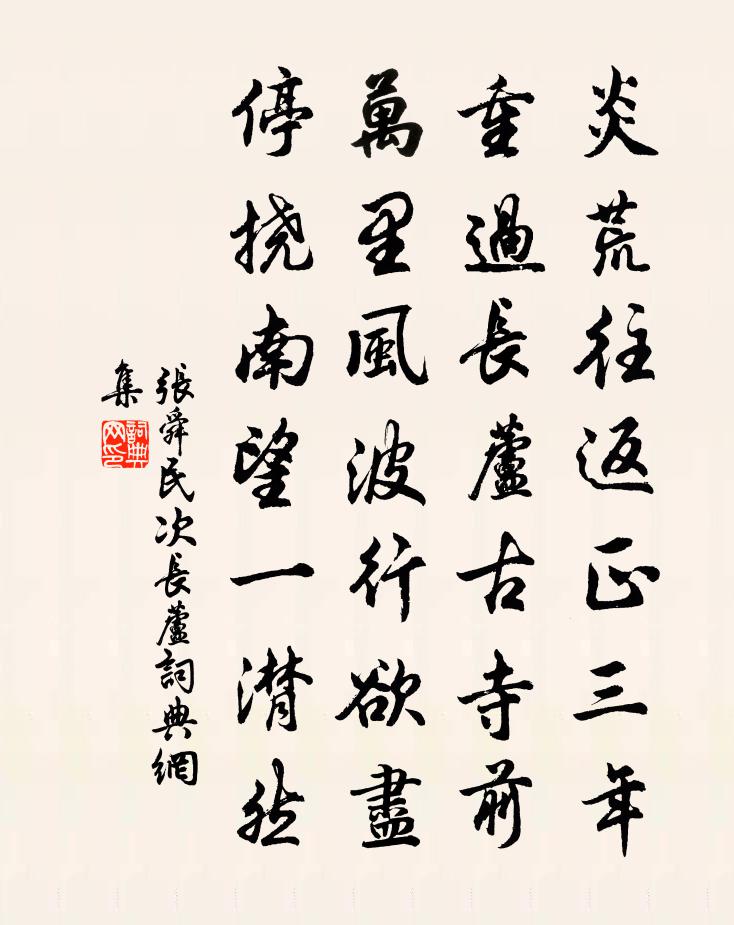 炎荒往返正三年
重過長蘆古寺前
萬里風波行欲盡
停撓南望一潸然
張舜民次長蘆詞典網
集
詞典
网印